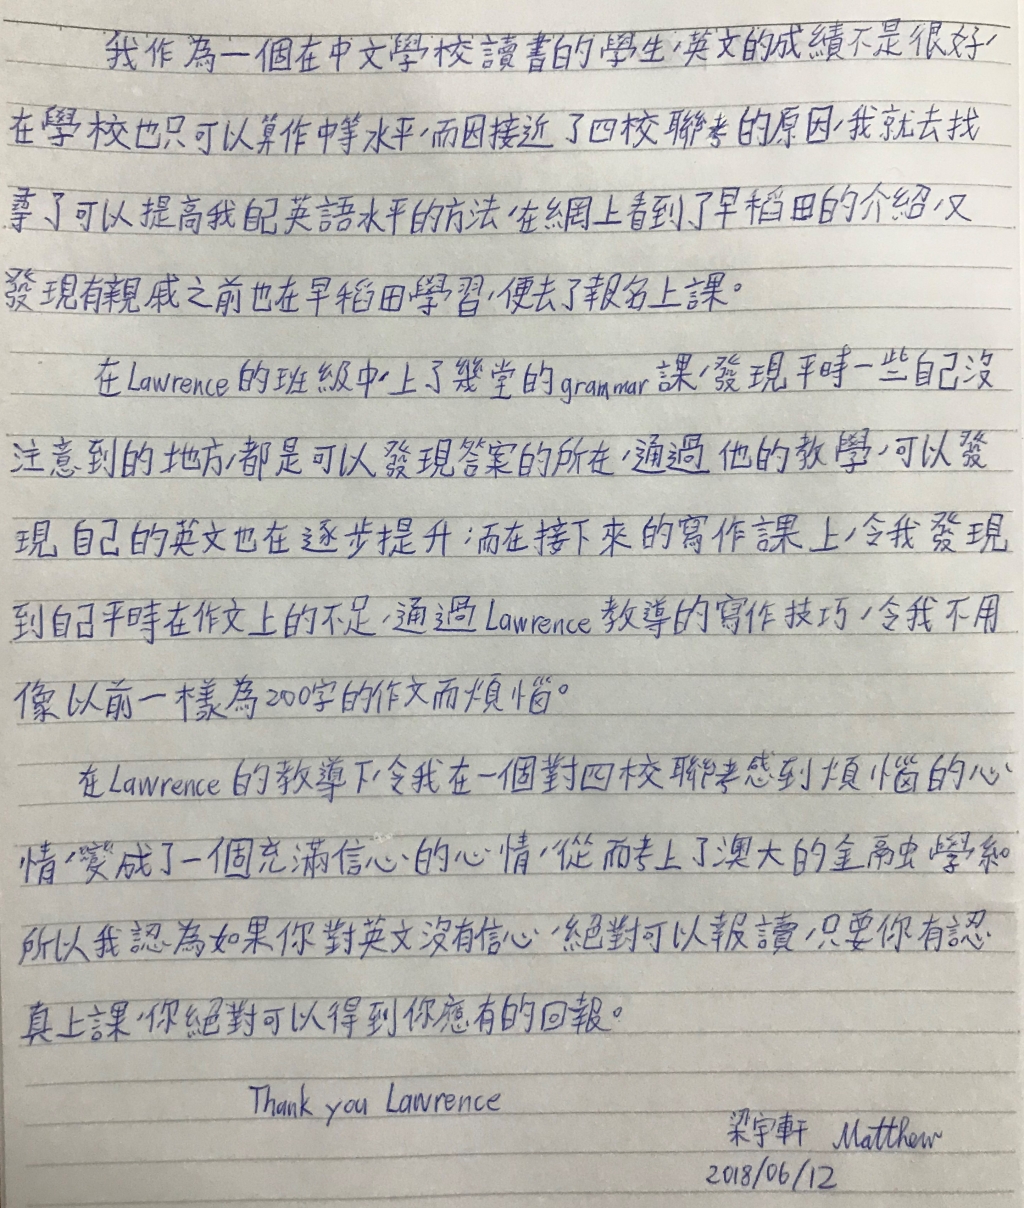 我作為一個在中文學校讀書的學生，英文的成績不是很好，
在學校也只可以算作中等水平，而因接近了四校聯考的原因，我就去找
尋了可以提高我自己英語水平的方法，在網上看到了早稻田的介紹，又
發現有親戚之前也在早稻田學習，便去了報名上課。
在Lawrence的班級中，上了幾堂的grammar課，發現平時一些自己沒
注意到的地方，都是可以發現答案的所在，通過他的教學，可以發
現自己的英文也在逐步提升；而在接下來的寫作課上，令我發現
到自己平時在作文上的不足，通過Lawrence教導的寫作技巧，令我不用
像以前一樣為200字的作文而煩惱。
在Lawrence的教導下，令我在一個對四校聯考感到煩惱的心
情，變成了一個充滿信心的心情，從而考上了澳大的金融學系。
所以我認為如果你對英文沒有信心，絕對可以報讀，只要你有認
真上課，你絕對可以得到你應有的回報。
Thank you Lawrence
梁宇軒 Matthew
2018/06/12